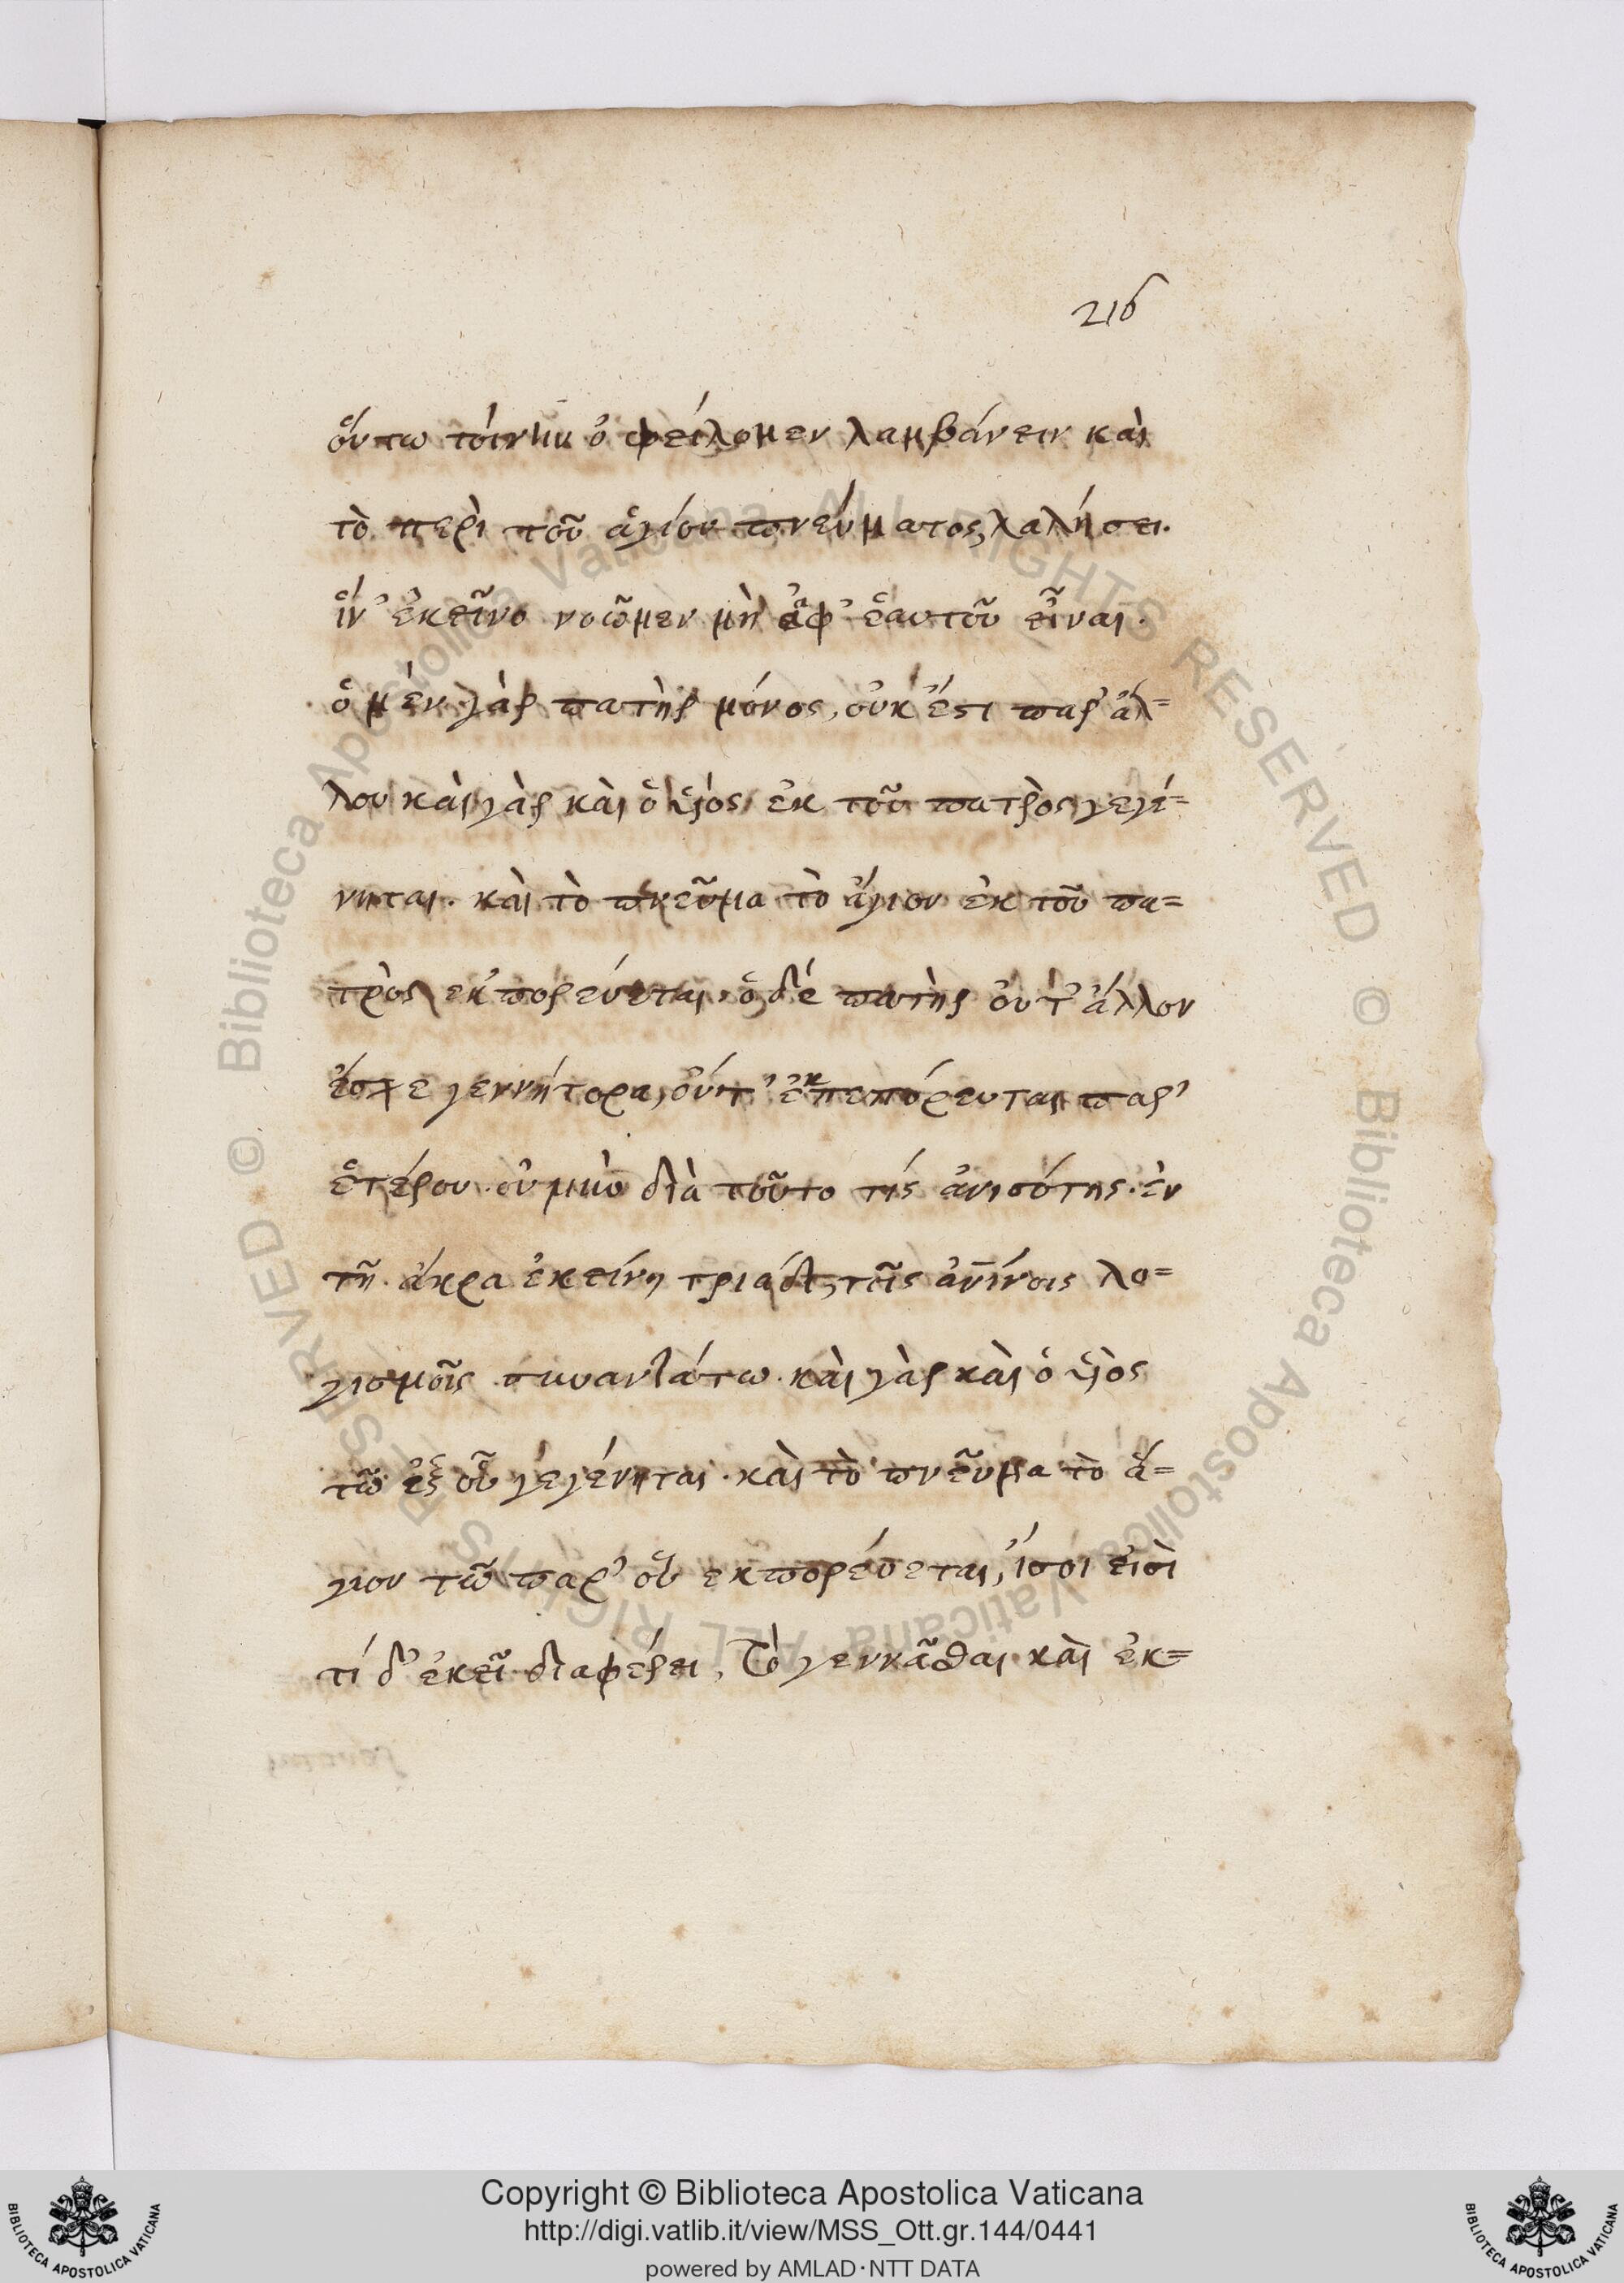 216
οὕτω τοίνυν ὀφείλομεν λαμβάνειν καὶ
τὸ περὶ τοῦ ἁγίου πνεύματος, λαλήσει.
ἵν' ἐκεῖνο νοῶμεν μὴ ἀφ' ἑαυτοῦ εἶναι.
ὁ μὲν γὰρ πατὴρ μόνος, οὐκ ἔστι παρ' ἄλ=
λου καὶ γὰρ καὶ ὁ ὑιός ἐκ τοῦ πατρὸς γεγέ=
νηται. καὶ τὸ πνεῦμα τὸ ἅγιον ἐκ τοῦ πα=
τρὸς ἐκπορεύεται. ὁ δέ πατὴρ οὔτ' ἄλλον
ἔσχε γεννήτορα, οὔτ' ἐκπεπόρευται παρ'
ἑτέρου. οὐ μὴν διὰ τοῦτο τίς ἀνισότης. ἐν
τῇ ἄκρα ἐκείνῃ τριάδι, τοῖς ἀνίνοις λο=
γισμοῖς καὶ γὰρ καὶ ὁ ὑιὸς
τῶ ἐξ οὗ γεγένηται. καὶ τὸ πνεῦμα τὸ ἅ=
γιον τῶ παρ' οὗ ἐκπορεύεται, ἴσοι εἰσὶ
τί δ' ἐκεῖ διαφέρει, Τὸ γεννᾶσθαι καὶ ἐκ=
Copyright © Biblioteca Apostolica Vaticana
http://digi.vatlib.it/view/MSS_Ott.gr.144/0441
powered by AMLAD·NTT DATA
BIBLIOTECA APOSTOLICA VATICANA
BIBLIOTECA APOSTOLICA VATICANA
© Biblioteca Apostolica Vaticana ALL RIGHTS RESERVED © Biblioteca Apostolica Vaticana ALL RIGHTS RESERVED